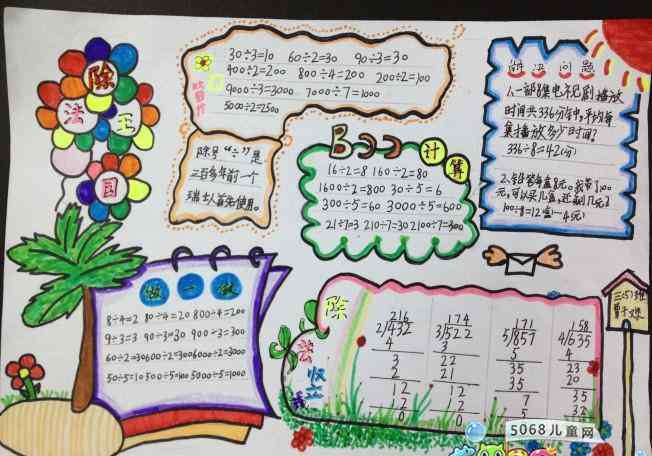 除
法
王
国
30÷3=10 60÷2=30 90÷3=30
400÷2=200 800÷4=200 200÷2=100
9000÷3=3000 7000÷7=1000
5000÷2=2500
除号“÷”是
三百多年前一个
瑞士人首先使用。
计算
16÷2=8 160÷2=80
1600÷2=800 30÷5=6
300÷5=60 3000÷5=600
21÷7=3 210÷7=30 2100÷7=300
解决问题
1、一部8集电视剧播放
时间共336分钟,平均每
集播放多少时间?
336÷8=42(分)
2、铅笔每盒8元。我带了100
元,可以买几盒,还剩几元?
100÷8=12(盒)…4(元)
做一做
8÷4=2 80÷4=20 800÷4=200
9÷3=3 90÷3=30 900÷3=300
60÷2=30 600÷2=300 6000÷2=3000
50÷5=10 500÷5=100 5000÷5=1000
除
法
竖
式
216
2/432
4
3
2
12
12
0
174
3/522
3
22
21
12
12
0
171
5/857
5
35
35
7
5
158
4/635
4
23
20
35
32
三(5)班
5068儿童网